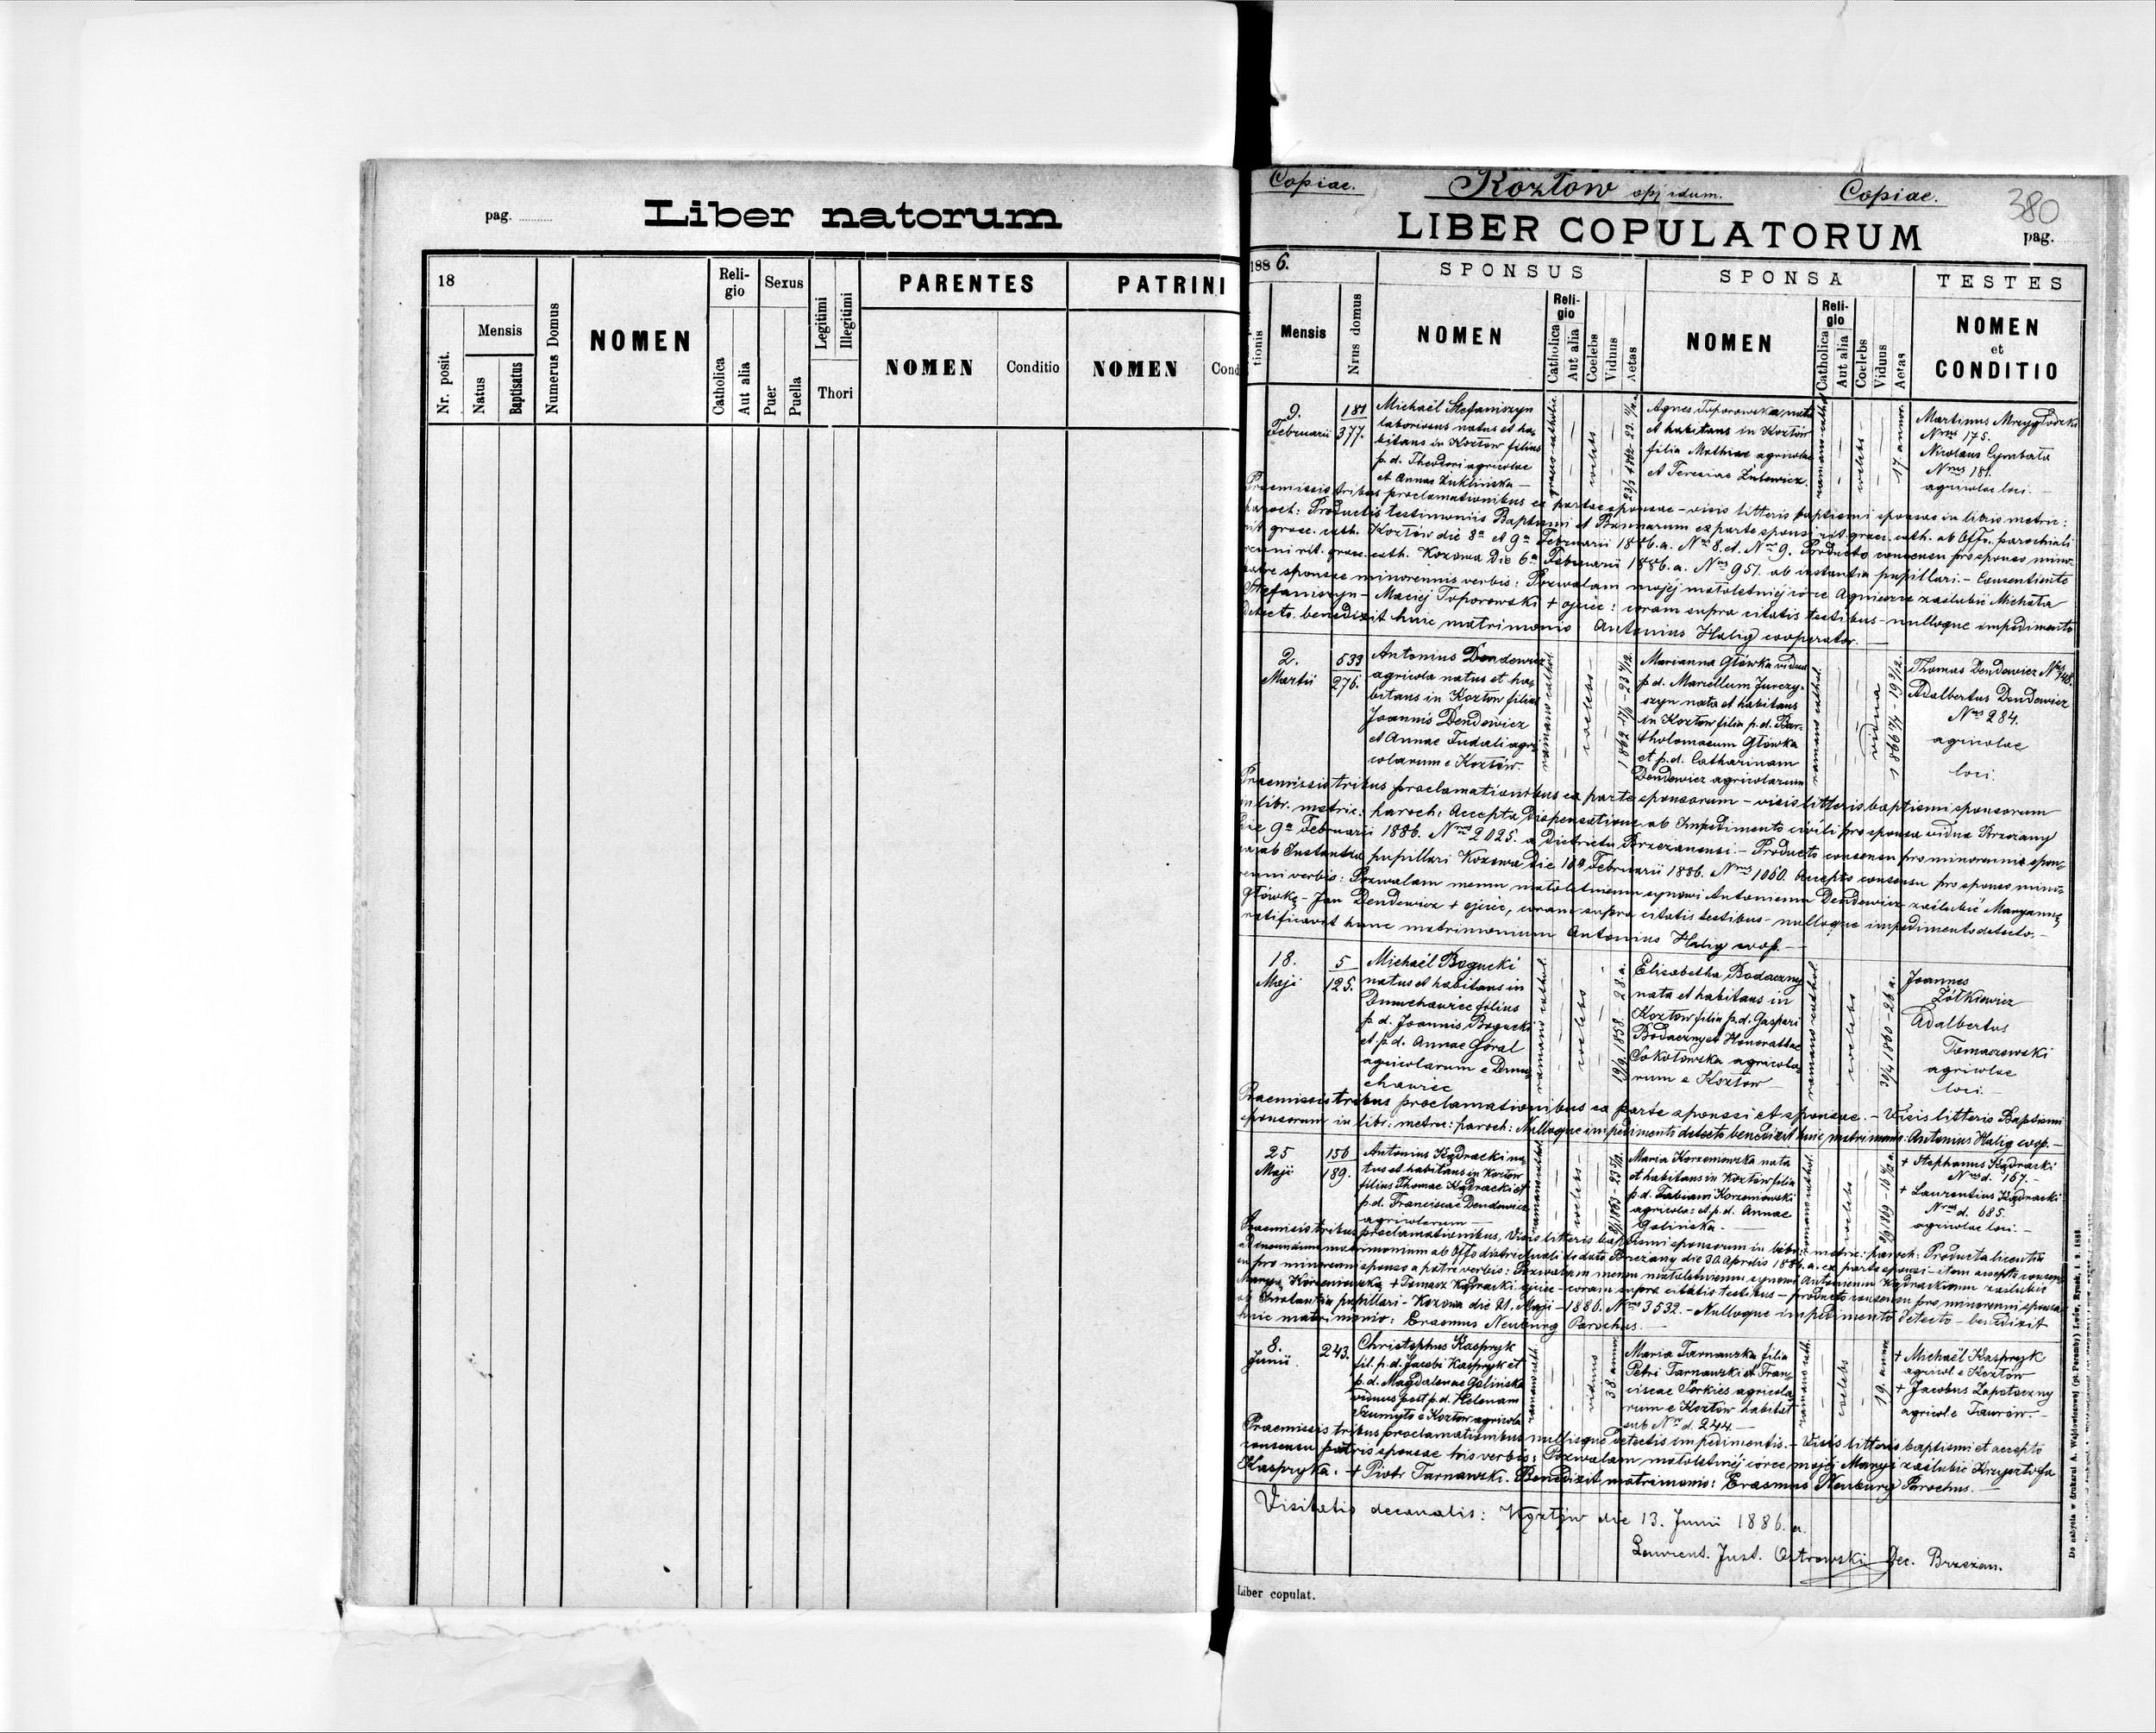 pag.
Liber natorum
18
Nr. posit.
Mensis
Natus
Baptisatus
Numerus Domus
NOMEN
Reli-
gio
Catholica
Aut alia
Sexus
Puer
Puella
Legitimi
Illegitimi
Thori
PARENTES
NOMEN
Conditio
PATRINI
NOMEN
Cond
Copiae. Kozłow oppidum. Copiae.
380
LIBER COPULATORUM
pag.
1886.
tionis
Mensis
Nrus domus
SPONSUS
NOMEN
Reli-
gio
Catholica
Aut alia
Coelebs
Viduus
Aetas
SPONSA
NOMEN
Reli-
gio
Catholica
Aut alia
Coelebs
Viduus
Aetas
TESTES
NOMEN
et
CONDITIO
9.
Februarii
181
377.
Michaël Stefaniszyn
laboriosus natus et ha-
bitans in Kozłow filius
p.d. Theodori agricolae
et Annae Żuklińska
graeco catholic.
coelebs
Agnes Toporowska nata
et habitans in Kozłów
filia Mathiae agricolae
et Teresiae
romano cathol.
coelebs
17. annor.
Martinus
Nrus 175.
Nicolaus Cymbala
Nrus 181.
agricolae loci.
Praemissis tribus proclamationibus ex parte sponsae - visis litteris baptismi sponsae in libris metric:
paroch: Productis testimoniis Baptismi et Bannorum ex parte sponsi rit. graec. cath. ab Offo. parochiali
rit. graec. cath. Kozłów die 8a et 9a Februarii 1886. a. Nro 8. et Nro 9. Producto consensu pro sponso mino-
renni rit. graec. cath. Kozowa Die 6a Februarii 1886. a. Nro 951. ab instantia pupillari. - Consentiente
patre sponsae minorennis verbis: Pozwalam mojéj małoletniej córce Agnieszce zaślubić Michała
Stefaniszyn - Maciej Toporowski + ojciec: coram supra citatis testibus - nulloque impedimento
detecto benedixit huic matrimonio Antonius Halig cooperator.
2.
Martii
533
276.
Antonius Dendewicz
agricola natus et ha-
bitans in Kozłow filius
Joannis Dendewicz
et Annae Fudali agri-
colarum e Kozłów.
romano cathol.
coelebs
Marianna Główka vidua
p.d. Marcellum Jurczy-
szyn nata et habitans
in Kozłow filia p.d. Bar-
tholomaeum Główka
et p.d. Catharinam
Dendewicz agricolarum
romano cathol.
vidua
Thomas Dendewicz Nrus 748.
Adalbertus Dendewicz
Nrus 284.
agricolae
loci.
Praemissis tribus proclamationibus ex parte sponsorum - visis litteris baptismi sponsorum
in libr. metric: paroch: Accepta Dispensatione ab Impedimento civili pro sponsa vidua Brzeżany
die 9a Februarii 1886. Nro 2025. a Districtu Brzezanensi. - Producto consensu pro minorennis spon-
sa ab Instantia pupillari Kozowa Die 10a Februarii 1886. Nro 1060. Accepto consensu pro sponso mino-
renni verbis: Pozwalam memu małoletniemu synowi Antoniemu Dendewicz zaślubić Maryannę
Główkę - Jan Dendewicz + ojciec, coram supra citatis testibus - nulloque impedimento detecto. -
ratificavit hunc matrimonium Antonius Halig coop.
18.
Maji
5
125.
Michaël Bogucki
natus et habitans in
Dmuchawiec filius
p.d. Joannis Bogucki
et p.d. Annae Góral
agricolarum e Dmu-
chawiec
romano cathol.
coelebs
19/9. 1858. - 28. a.
Elisabetha Bodaczny
nata et habitans in
Kozłow filia p.d. Gaspari
Bodaczny et Honoratae
Sokołowska agricola-
rum e Kozłow
romano cathol.
coelebs
30/4 1860 - 26 a.
Joannes
Żółkiewicz
Adalbertus
Tomaszewski
agricolae
loci.
Praemissis tribus proclamationibus ex parte sponssi et sponsae. - Visis litteris Baptismi
sponsorum in libr: metric: paroch: Nulloque impedimento detecto benedixit huic matrimonio: Antonius Halig coop. -
25
Maji
156
189.
Antonius Kądracki na-
tus et habitans in Kozłow
filius Thomae Kądracki et
p.d. Franciscae Dendewicz
agricolarum
romano cathol.
coelebs
Maria Korzeniowska nata
et habitans in Kozłow filia
p.d. Fabiani Korzeniowski
agricola: et p.d. Annae
Golinska.
romano cathol.
coelebs
+ Stephanus Kądracki
Nrus d. 167.
+ Laurentius Kądracki
Nrus d. 685.
agricolae loci.
Praemissis tribus proclamationibus, Visis litteris baptismi sponsorum in libr: metric: paroch: Producta licentia
ad ineundum matrimonium ab Offo districtuali de dato Brzeżany die 30. Aprilis 1886. a. ex parte sponsi - item accepto consen-
su pro minorenni sponso a patre verbis: Pozwalam memu małoletniemu synowi Antoniemu Kądrackiemu zaślubić
Maryę Korzeniowską + Tomasz Kądracki ojciec - coram supra citatis testibus - producto consensu pro minorenni sponsa
ab Instantia pupillari - Kozowa die 21. Maji - 1886. Nro 3532. - Nulloque impedimento detecto - benedixit
huic matrimonio: Erasmus Neuburg Parochus.
8.
Junii
243.
Christophus Kaspryk
fil. p.d. Jacobi Kaspryk et
p.d. Magdalenae Golińska
viduus post p.d. Helenam
Szumyło e Kozłow agricola
romano cath.
viduus
38 annor.
Maria Tarnawska filia
Petri Tarnawski et Fran-
ciscae Sorkies agricola-
rum e Kozłów habitat
sub Nro d. 244.
romano cath.
coelebs
19. annor.
+ Michaël Kaspryk
agricol. e Kozłow
+ Jacobus Zapotoczny
agricol. e Taurów.
Praemissis tribus proclamationibus nullisque detectis impedimentis. - Visis litteris baptismi et accepto
consensu patris sponsae his verbis: Pozwalam małoletniéj córce mojéj Maryi zaślubić Krzysztofa
Kaspryka. + Piotr Tarnawski. Benedixit matrimonio: Erasmus Neuburg Parochus.
Visitatio decanalis: Kozłów die 13. Junii 1886. a.
Laurent. Just. Ostrowski Dec. Brzezan.
Liber copulat.